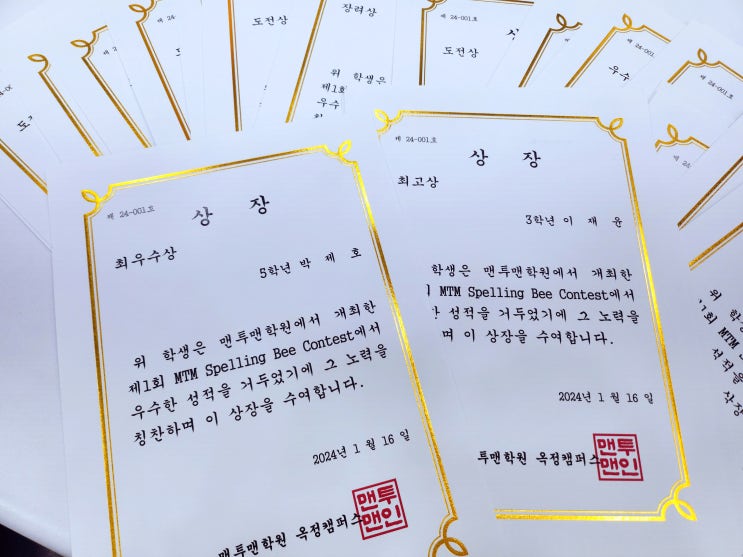 도전상
장려상
위 학생은
제1회
우수
도전상
제 24-001호
우수
제 24-001호
상 장
최우수상
5학년 박 제 호
위 학생은 맨투맨학원에서 개최한
제1회 MTM Spelling Bee Contest에서
우수한 성적을 거두었기에 그 노력을
칭찬하며 이 상장을 수여합니다.
2024년 1월 16일
맨투맨학원 옥정캠퍼스
맨투
맨인
제 24-001호
상 장
최고상
3학년 이 재 윤
학생은 맨투맨학원에서 개최한
MTM Spelling Bee Contest에서
성적을 거두었기에 그 노력을
며 이 상장을 수여합니다.
2024년 1월 16일
투맨학원 옥정캠퍼스
맨투
맨인
위 학생
MTM
성적을